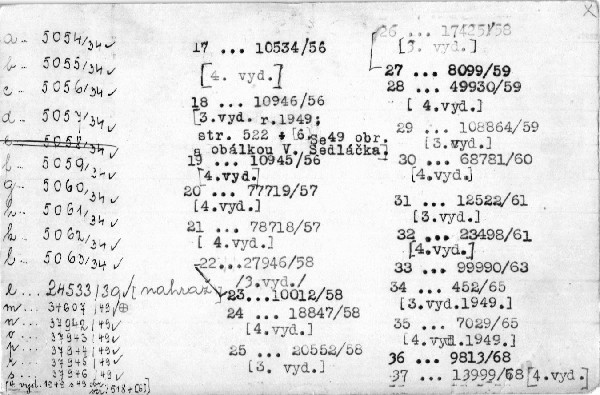 a.. 5054/34 ✓
b.. 5055/34 ✓
c.. 5056/34 ✓
d.. 5057/34 ✓
e.. 5058/34
f.. 5059/34 ✓
g.. 5060/34 ✓
h.. 5061/34 ✓
k.. 5062/34 ✓
l.. 5063/34 ✓
l... 24533/39 ✓ [nahraž.]
m... 34607/49 ✓ ⊕
n... 37942/49 ✓
o... 37943/49 ✓
p... 37944/49 ✓
r... 37945/49 ✓
s... 37946/49 ✓
[4. vyd. 1949 s 49 obr. str. 518+[6]]
17 ... 10534/56
[4. vyd.]
18 ... 10946/56
[3.vyd. r.1949;
str. 522 + [6. Se49 obr.
s obálkou V. Sedláčka]
19 ... 10945/56
[4.vyd.]
20 ... 77719/57
[4.vyd.]
21 ... 78718/57
[ 4.vyd.]
22...27946/58
/3.vyd./
23...10012/58
24 ... 18847/58
[4.vyd.]
25 ... 20552/58
[3. vyd.]
26 ... 17425/58
[3. vyd.]
27 ... 8099/59
28 ... 49930/59
[ 4.vyd.]
29 ... 108864/59
[3.vyd.]
30 ... 68781/60
[4.vyd.]
31 ... 12522/61
[3.vyd.]
32 ... 23498/61
[4.vyd.]
33 ... 99990/63
34 ... 452/65
[3.vyd.1949.]
35 ... 7029/65
[4.vyd.1949.]
36 ... 9813/68
37 ... 13999/68 [4.vyd.]